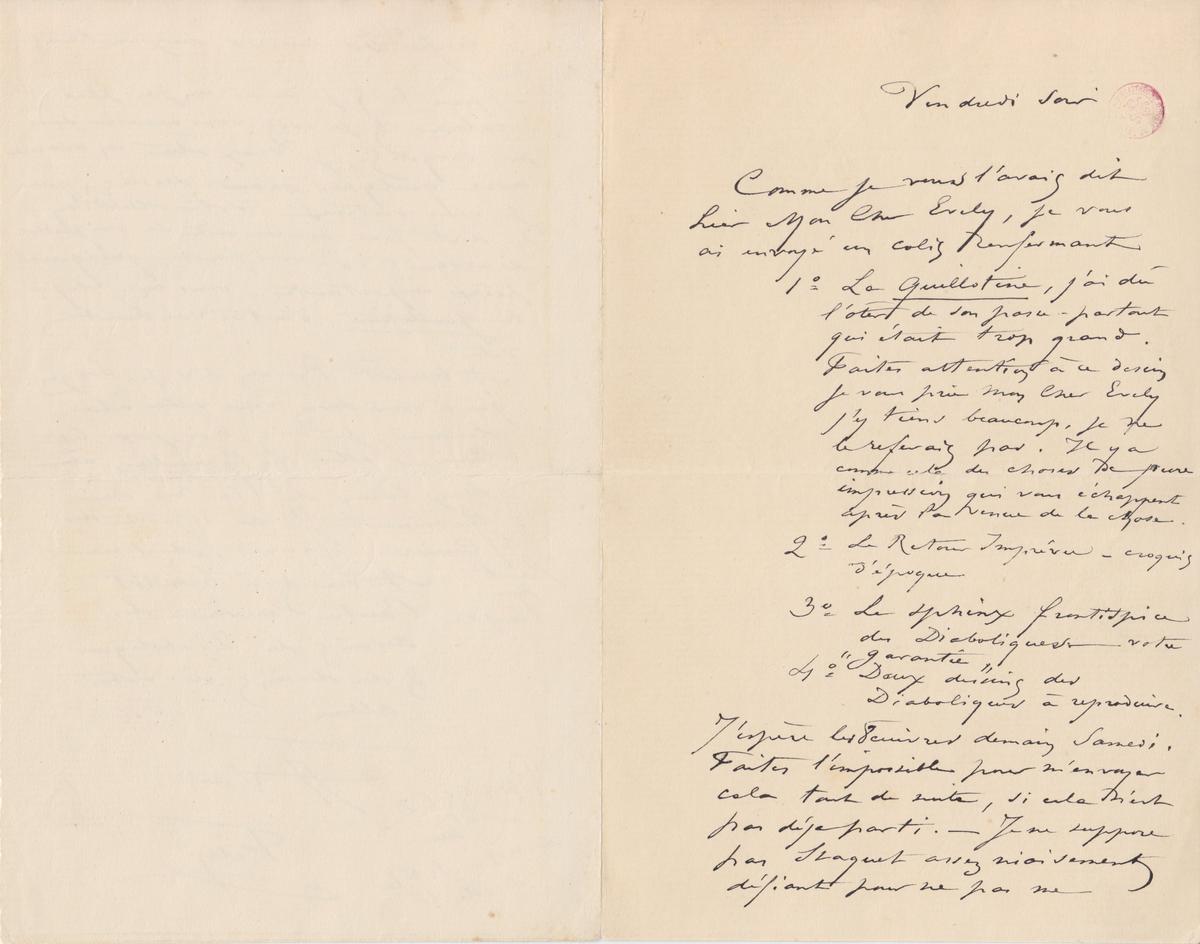 Vendredi Soir
Comme je vous l'avais dit
hier Mon Cher Evely, je vous
ai envoyé un colis renfermant
1º La Guillotine, j'ai dû
l'ôter de son passe-partout
qui était trop grand.
Faites attention à ce dessin
je vous prie mon Cher Evely
j'y tiens beaucoup, je ne
le referais pas. Il y a
comme cela des choses de pure
impression qui vous échappent
après la venue de la chose.
2º Le Retour Imprévu – croquis
d'époque
3º Le sphinx frontispice
des Diaboliques — votre
"garantie"
4º Deux dessins des
Diaboliques à reproduire.
J'espère les 8 cuivres demain Samedi.
Faites l'impossible pour m'envoyer
cela tout de suite, si cela n'est
pas déjà parti. — Je ne suppose
pas Staquet assez niaisement
défiant pour ne pas me